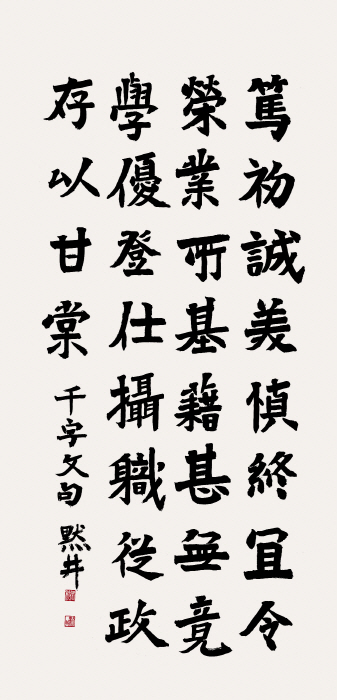 篤初誠美慎終宜令
榮業所基籍甚無竟
學優登仕攝職從政
存以甘棠
千字文句 默井